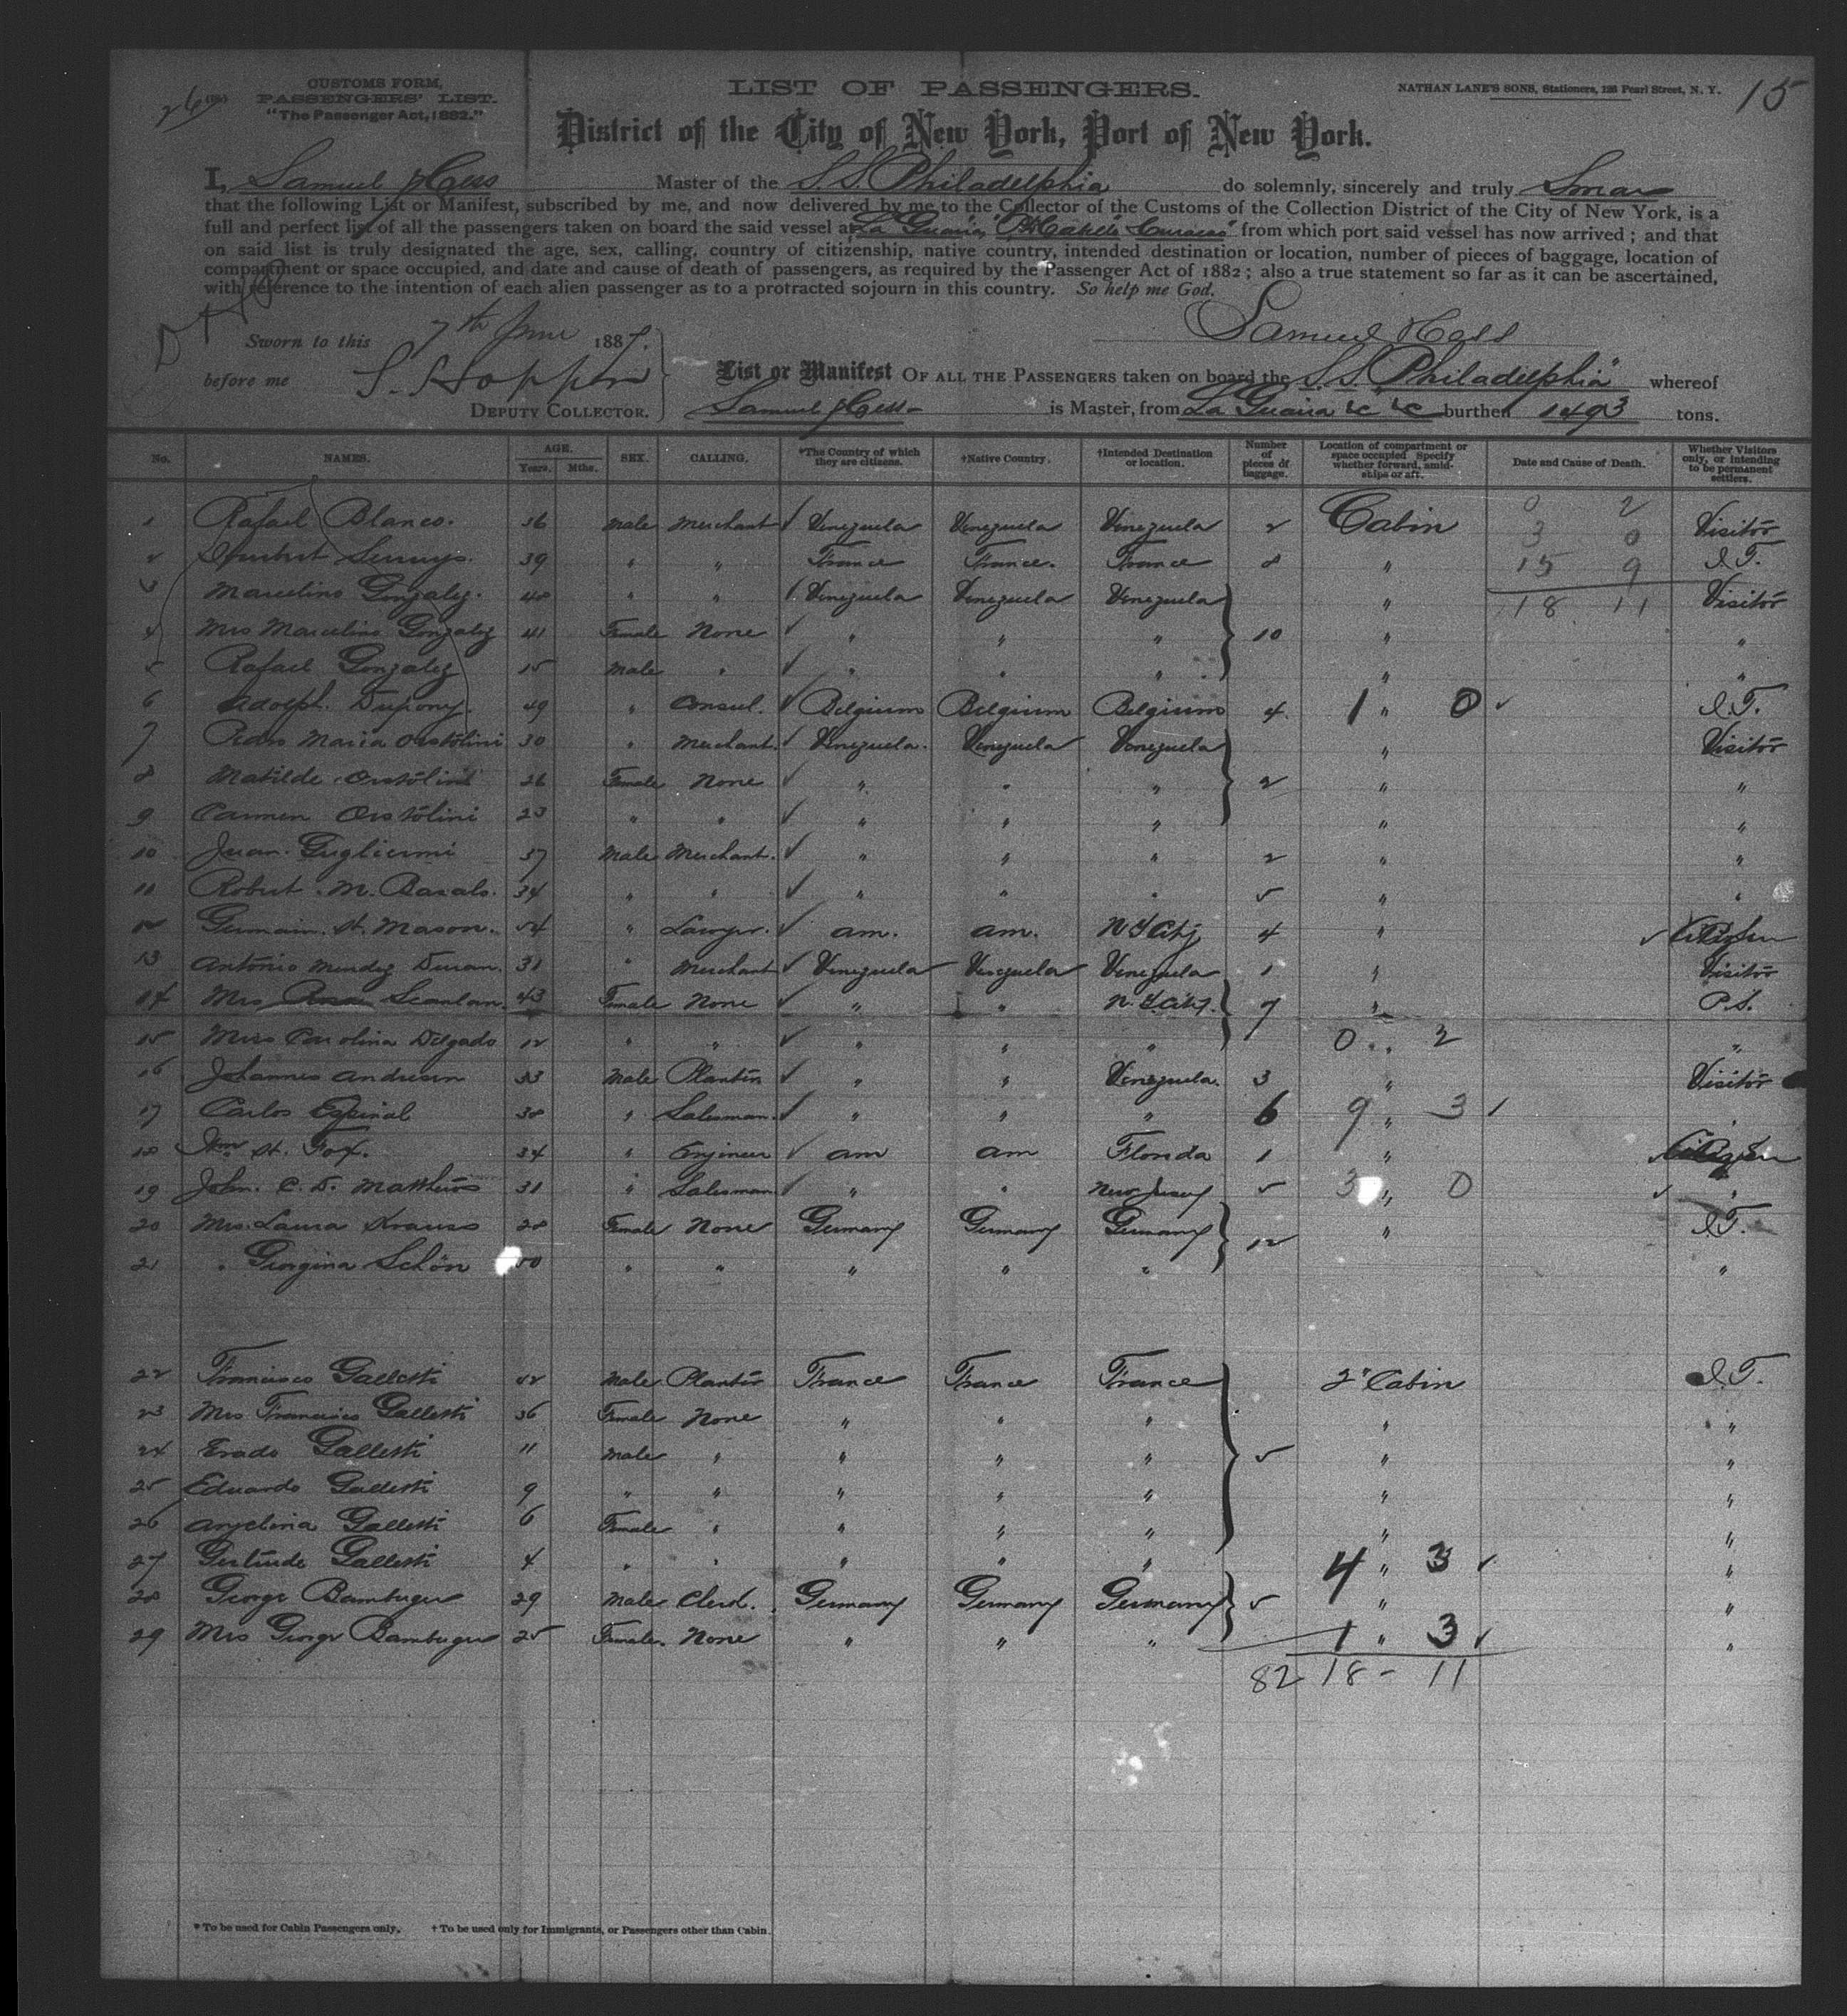 26 (98)
CUSTOMS FORM,
PASSENGERS' LIST.
"The Passenger Act, 1882."
LIST OF PASSENGERS.
NATHAN LANE'S SONS, Stationers, 126 Pearl Street, N. Y.
15
District of the City of New York, Port of New York.
I, Samuel Hess Master of the S.S. Philadelphia do solemnly, sincerely and truly Swear
that the following List or Manifest, subscribed by me, and now delivered by me to the Collector of the Customs of the Collection District of the City of New York, is a
full and perfect list of all the passengers taken on board the said vessel at La Guaira, P. Cabello Curacao from which port said vessel has now arrived; and that
on said list is truly designated the age, sex, calling, country of citizenship, native country, intended destination or location, number of pieces of baggage, location of
compartment or space occupied, and date and cause of death of passengers, as required by the Passenger Act of 1882; also a true statement so far as it can be ascertained,
with reference to the intention of each alien passenger as to a protracted sojourn in this country. So help me God.
Sworn to this 7th June 1887.
Samuel Hess
before me
DEPUTY COLLECTOR.
List or Manifest OF ALL THE PASSENGERS taken on board the S.S. Philadelphia whereof
Samuel Hess is Master, from La Guaira &c &c burthen 1493 tons.
No. NAMES. AGE. Years. Mths. SEX. CALLING. *The Country of which they are citizens. †Native Country. †Intended Destination or location. Number of pieces of baggage. Location of compartment or space occupied Specify whether forward, amidships or aft. Date and Cause of Death. Whether Visitors only, or intending to be permanent settlers.
1 Rafael Blanco. 36 Male Merchant Venezuela Venezuela Venezuela 2 Cabin 0 2 3 0 Visitor
2 39 " " France France. France 8 " 15 9 I.T.
3 Marcelino Gonzalez. 48 " " Venezuela Venezuela Venezuela " 18 11 Visitor
4 Mrs Marcelino Gonzalez 41 Female None " " " 10 " "
5 Rafael Gonzalez 15 Male " " " " " "
6 Adolph. Dupony. 49 " Consul. Belgium Belgium Belgium 4. 1 " 0 I.T.
7 Pedro Maria Orstolini 30 " Merchant. Venezuela. Venezuela Venezuela " Visitor
8 Matilde Orstolini 26 Female None " " " 2 " "
9 Carmen Orstolini 23 " " " " " " "
10 Juan Guglielmi 37 Male Merchant. " " " 2 " "
11 Robert M. 34 " " " " " 5 " "
12 Germain. H. Mason. 54 " Lawyer. Am. Am. N Y City 4 " Citizen
13 Antonio Mendez Duran. 31 " Merchant Venezuela Venezuela Venezuela 1 " Visitor
14 Mrs Rosa Scanlan. 43 Female None " " N. Y. City. 7 " P.S.
15 Miss Carolina Delgado 12 " " " " " 0 " 2 "
16 Johannes Andresen 33 Male Planter " " Venezuela. 3 " Visitor
17 Carlos Espinal 38 " Salesman. " " " 6 9 " 3 "
18 Wm H. Fox. 34 " Engineer Am Am Florida 1 " Citizen
19 John. C. D. Matthews 31 " Salesman " " New Jersey 5 3 " 0 "
20 Mrs. Laura Krauss 28 Female None Germany Germany Germany 12 " I.T.
21 " Georgina Schön 50 " " " " " "
22 Francisco Galletti 42 Male Planter France France France 2" Cabin I.T.
23 Mrs Francisco Galletti 36 Female None " " " " "
24 Galletti 11 Male " " " " 5 " "
25 Eduardo Galletti 9 " " " " " " "
26 Angelina Galletti 6 Female " " " " " "
27 Gertrude Galletti 4 " " " " " 4 " 3 "
28 George Bamberger 29 Male Clerk. Germany Germany Germany 5 " "
29 Mrs George Bamberger 25 Female. None " " " 1 " 3 "
82 18 - 11
* To be used for Cabin Passengers only. † To be used only for Immigrants, or Passengers other than Cabin.